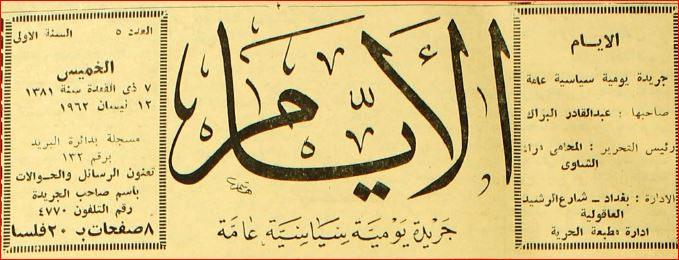 الايام
جريدة يومية سياسية عامة
صاحبها : عبدالقادر البراك
رئيس التحرير : المحامي
الشاوي
الادارة : بغداد ــ شارع الرشيد
العاقولية
ادارة مطبعة الحرية
الأيام
جريدة يومية سياسية عامة
العدد ٥ السنة الاولى
الخميس
٧ ذي القعدة سنة ١٣٨١
١٢ نيسان ١٩٦٢
مسجلة بدائرة البريد
برقم ١٣٢
تعنون الرسائل والحوالات
باسم صاحب الجريدة
رقم التلفون ٤٧٧٠
٨ صفحات ب ٢٠ فلسا